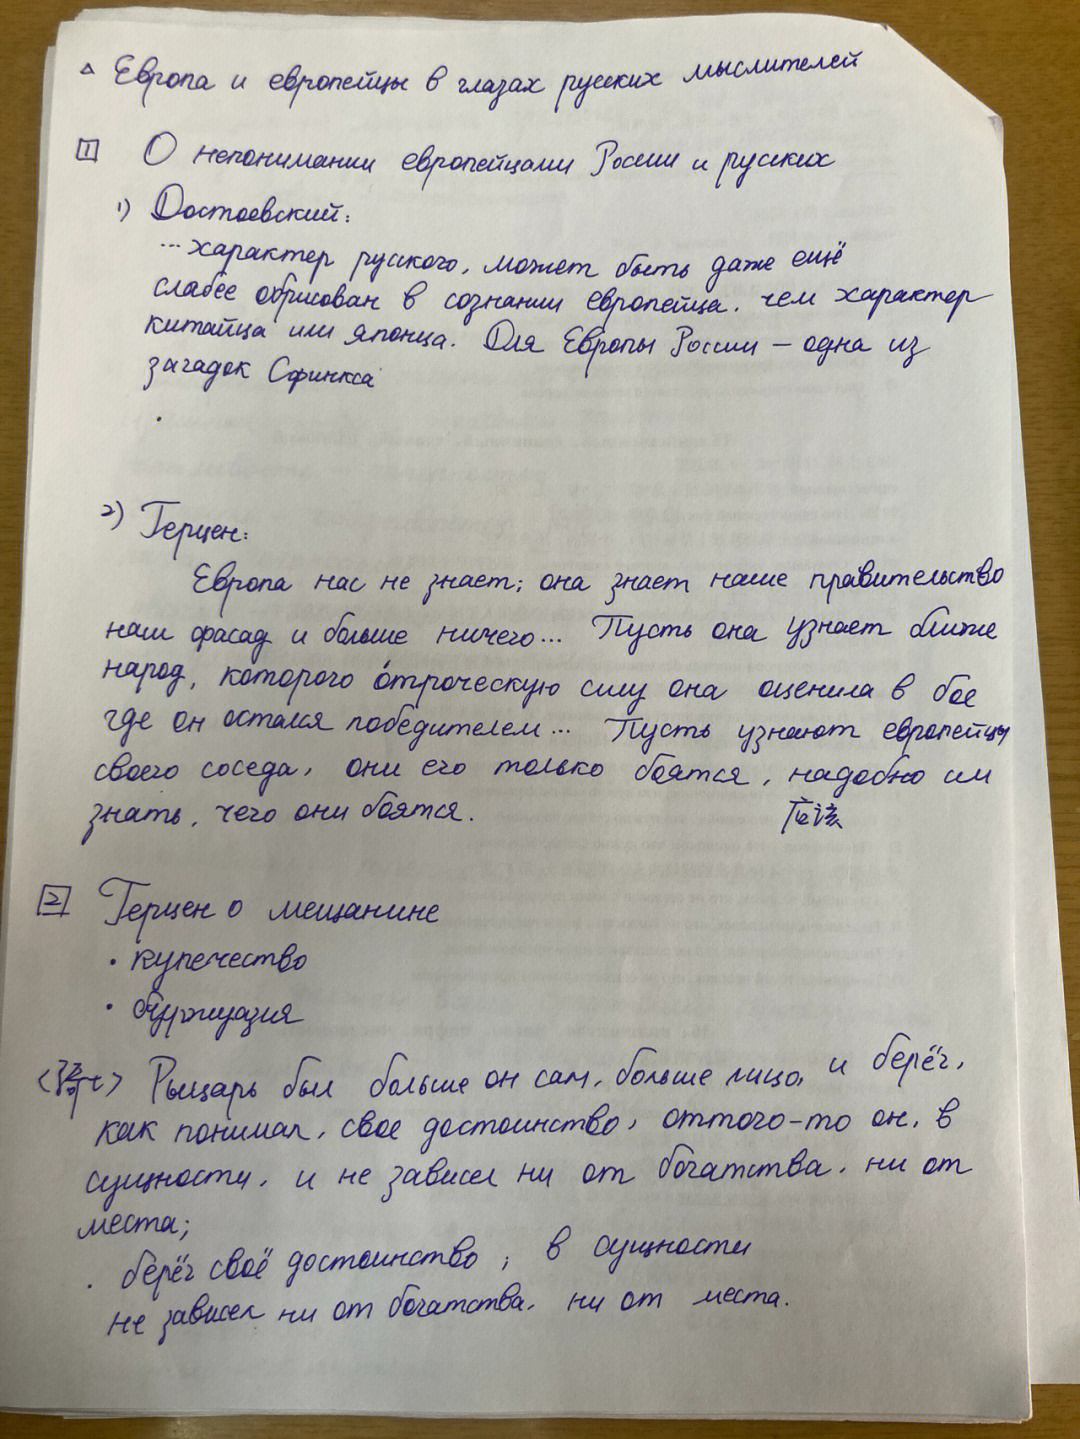 △ Европа и европейцы в глазах русских мыслителей
1 О непонимании европейцами России и русских
1) Достоевский:
... характер русского, может быть даже ещё
слабее обрисован в сознании европейца, чем характер
китайца или японца. Для Европы России – одна из
загадок Сфинкса
2) Герцен:
Европа нас не знает; она знает наше правительство
наш фасад и больше ничего... Пусть она узнает ближе
народ, которого о́троческую силу она оценила в бое
где он остался победителем... Пусть узнают европейцы
своего соседа, они его только боятся, надобно им
应该
знать, чего они боятся.
2 Герцен о мещанине
• купечество
• буржуазия
Рыцарь был больше он сам, больше лицо, и берёг,
как понимал, свое достоинство, оттого-то он, в
сущности, и не зависел ни от богатства, ни от
места;
. берёг своё достоинство ; в сущности
не зависел ни от богатства, ни от места.